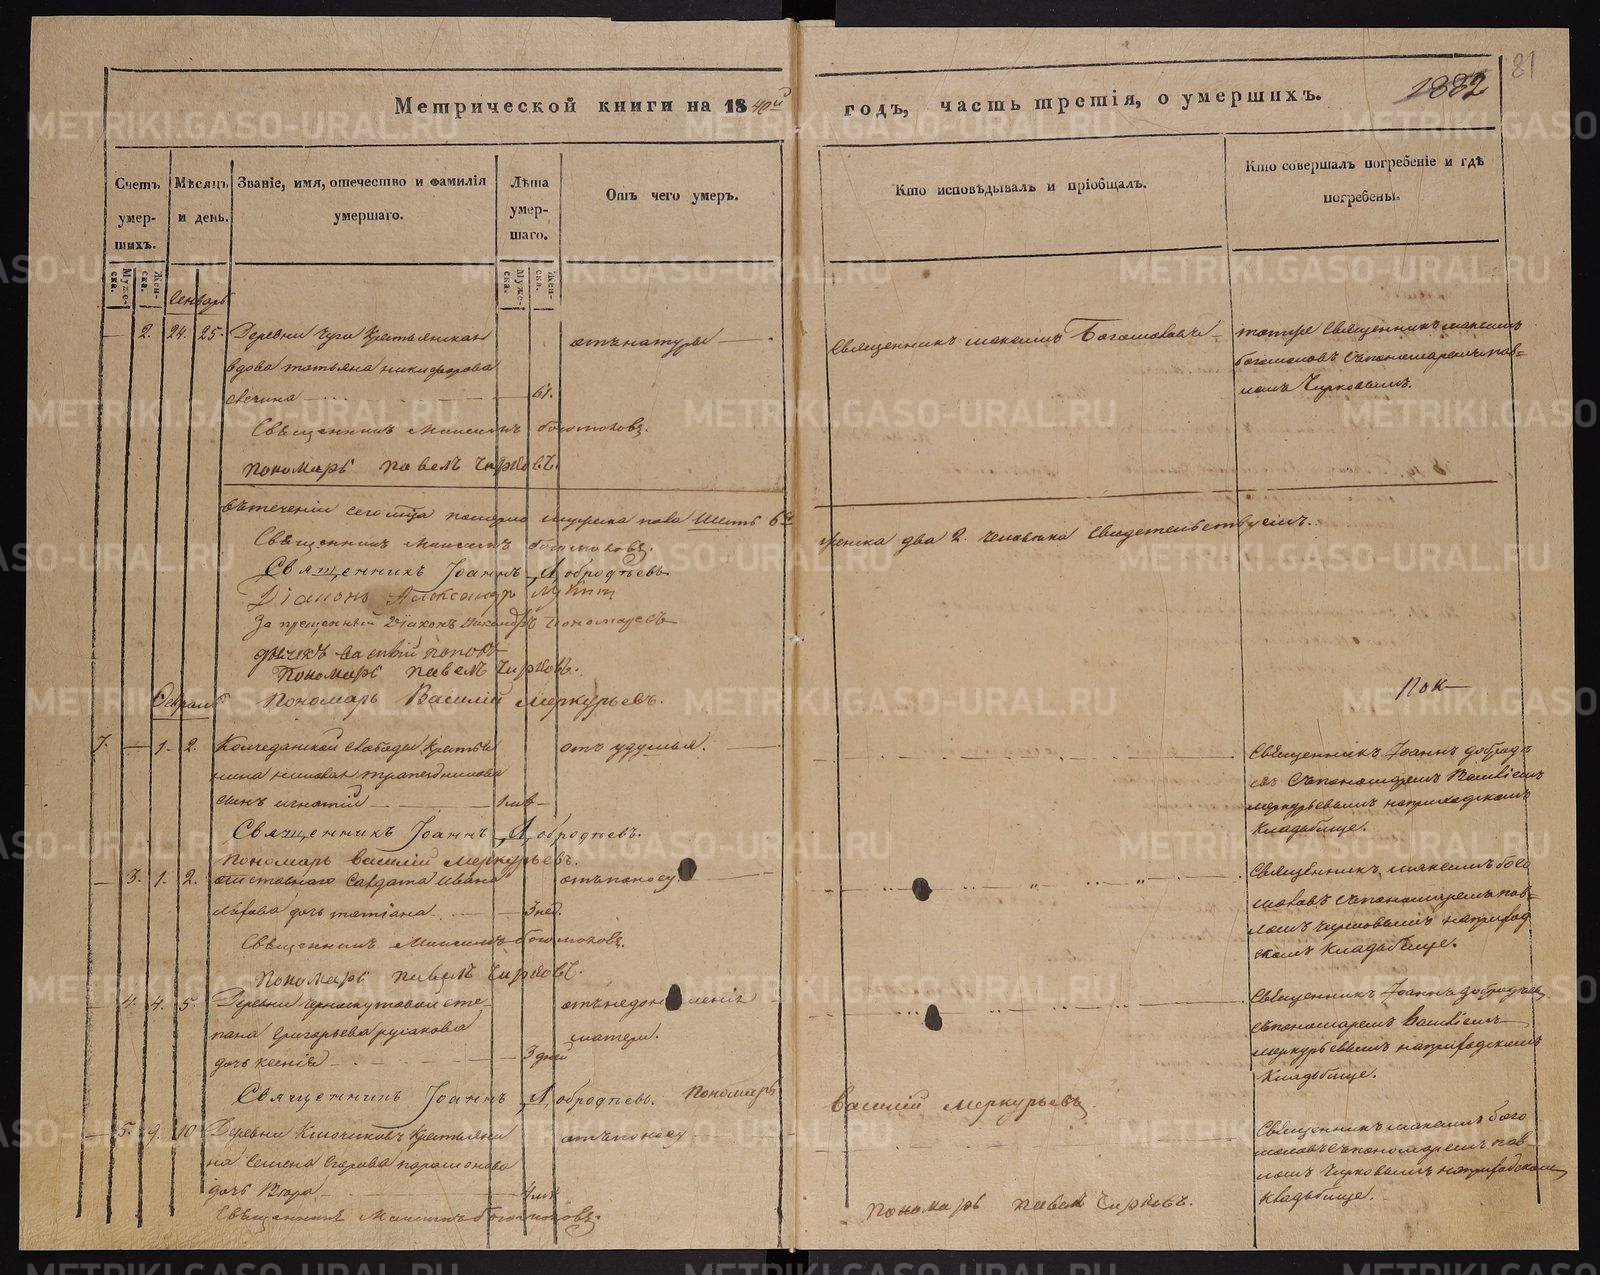 81
1882
Метрической книги на 1840й годъ, часть третія, о умершихъ.
Счетъ умер-
шихъ.
Муже-
ска.
Жен-
ска.
Мѣсяцъ
и день.
Званіе, имя, отечество и фамилія
умершаго.
Лѣта
умер-
шаго.
Муже-
ска.
Жен-
ска.
Отъ чего умеръ.
Кто исповѣдывалъ и пріобщалъ.
Кто совершалъ погребеніе и гдѣ
погребены.
2. 24. 25. Деревни
вдова татьяна никифорова
61.
отъ натуры
Священникъ максимъ Богомоловъ
Священникъ максимъ
богомоловъ съ пономаремъ пав=
ломъ Чирковымъ.
Священникъ Максимъ богомоловъ.
пономарь павелъ Чирковъ.
втеченіи сего мца померло мужеска пола шесть 6ть
женска два 2. человека свидетельствуемъ.
Священникъ Максимъ богомоловъ.
Священникъ Іоаннъ Добродѣевъ
Діаконъ Александръ
Запрещенный діаконъ пономаревъ
василій поповъ
Пономарь павелъ Чирковъ.
Пономарь Василій меркурьевъ.
Февраль
7. — 1. 2. Колчеданской слободы крестья
нина трапезникова
сынъ игнатій
отъ удушья.
Священникъ Іоаннъ добродѣ
евъ съ пономаремъ Василіемъ
меркурьевымъ на приходскомъ
кладбище.
Священникъ Іоаннъ Добродѣевъ.
пономарь василій меркурьевъ.
— 3. 1. 2. отставнаго салдата ивана
львова дочь татіана
3 нед.
отъ поносу.
Священникъ максимъ бого
моловъ съ пономаремъ пав=
ломъ чирковымъ на приход
скомъ кладбище.
Священникъ Максимъ богомоловъ.
Пономарь павелъ Чирковъ.
— 4. 4. 5. Деревни черноскутовой сте=
пана григорьева русакова
дочь ксенія
3 дней
матери.
Священникъ Іоаннъ добродѣевъ
съ пономаремъ Василіемъ
меркурьевымъ на приходскомъ
кладбище.
Священникъ Іоаннъ Добродѣевъ. Пономарь
Василій Меркурьевъ.
— 5. 9. 10. Деревни крестьяни
на семена егорова парамонова
дочь
отъ поносу
Священникъ максимъ бого
моловъ съ пономаремъ пав=
ломъ Чирковымъ на приходскомъ
кладбище.
Священникъ Максимъ богомоловъ.
Пономарь павелъ Чирковъ.
METRIKI.GASO-URAL.RU